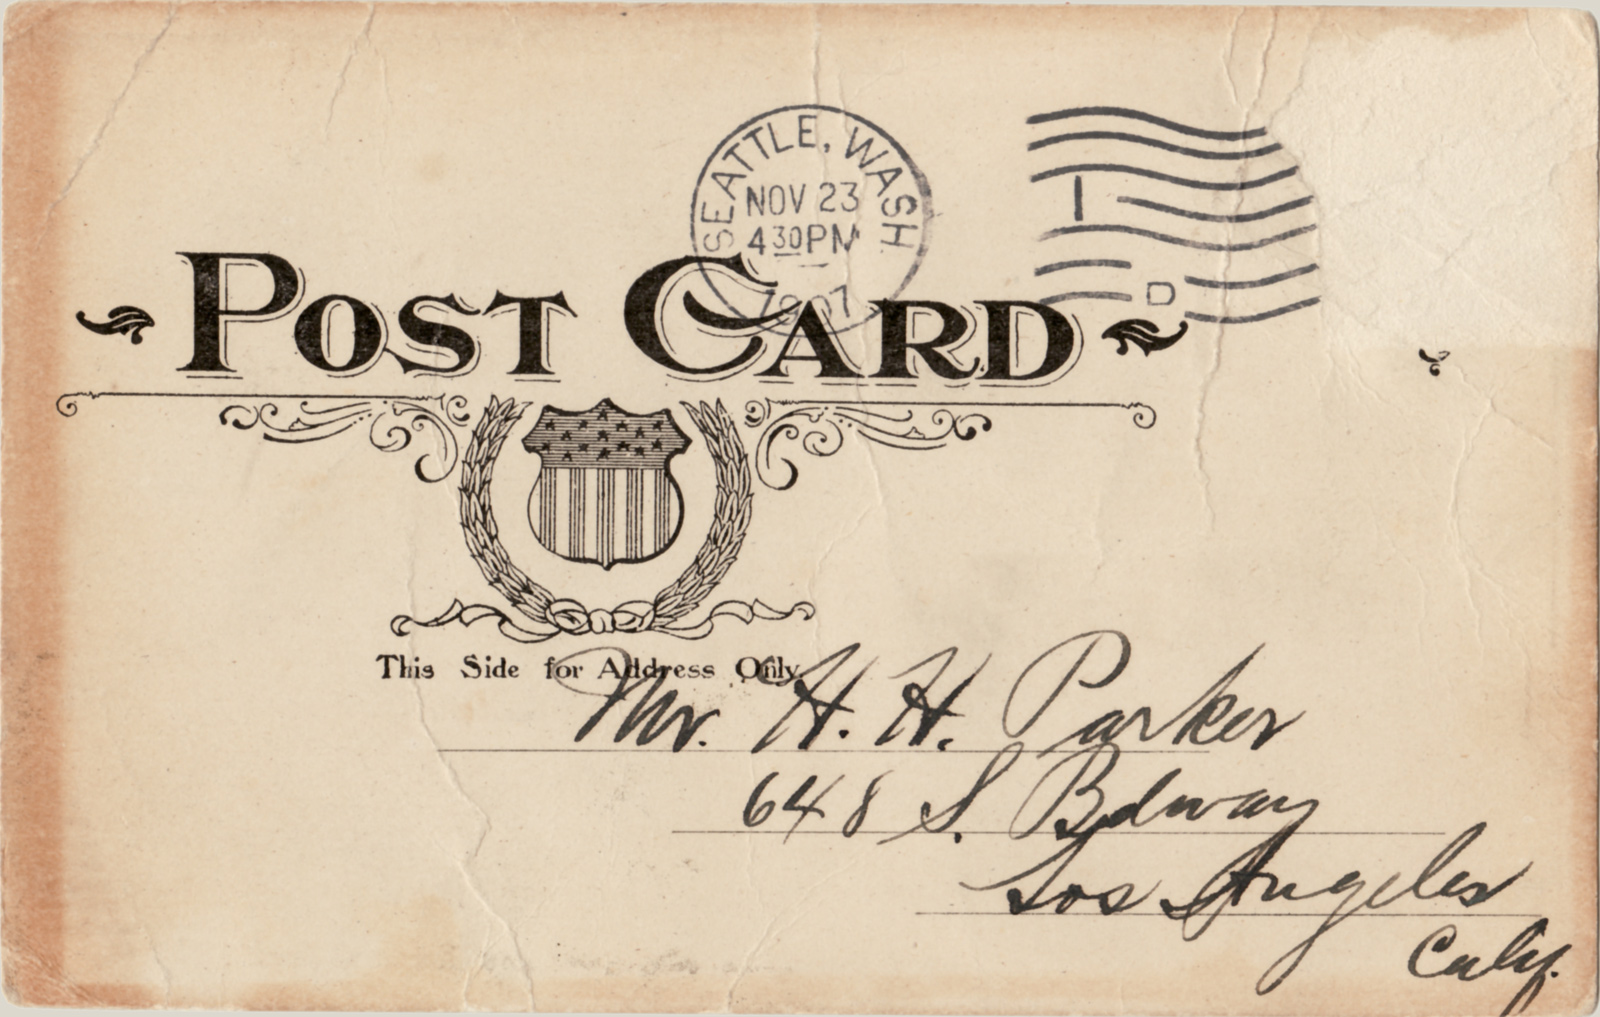 SEATTLE, WASH
NOV 23
4 30 PM
1907
1
D
POST CARD
This Side for Address Only.
Mr. H. H. Parker
648 S. Bdway
Los Angeles
Calif.